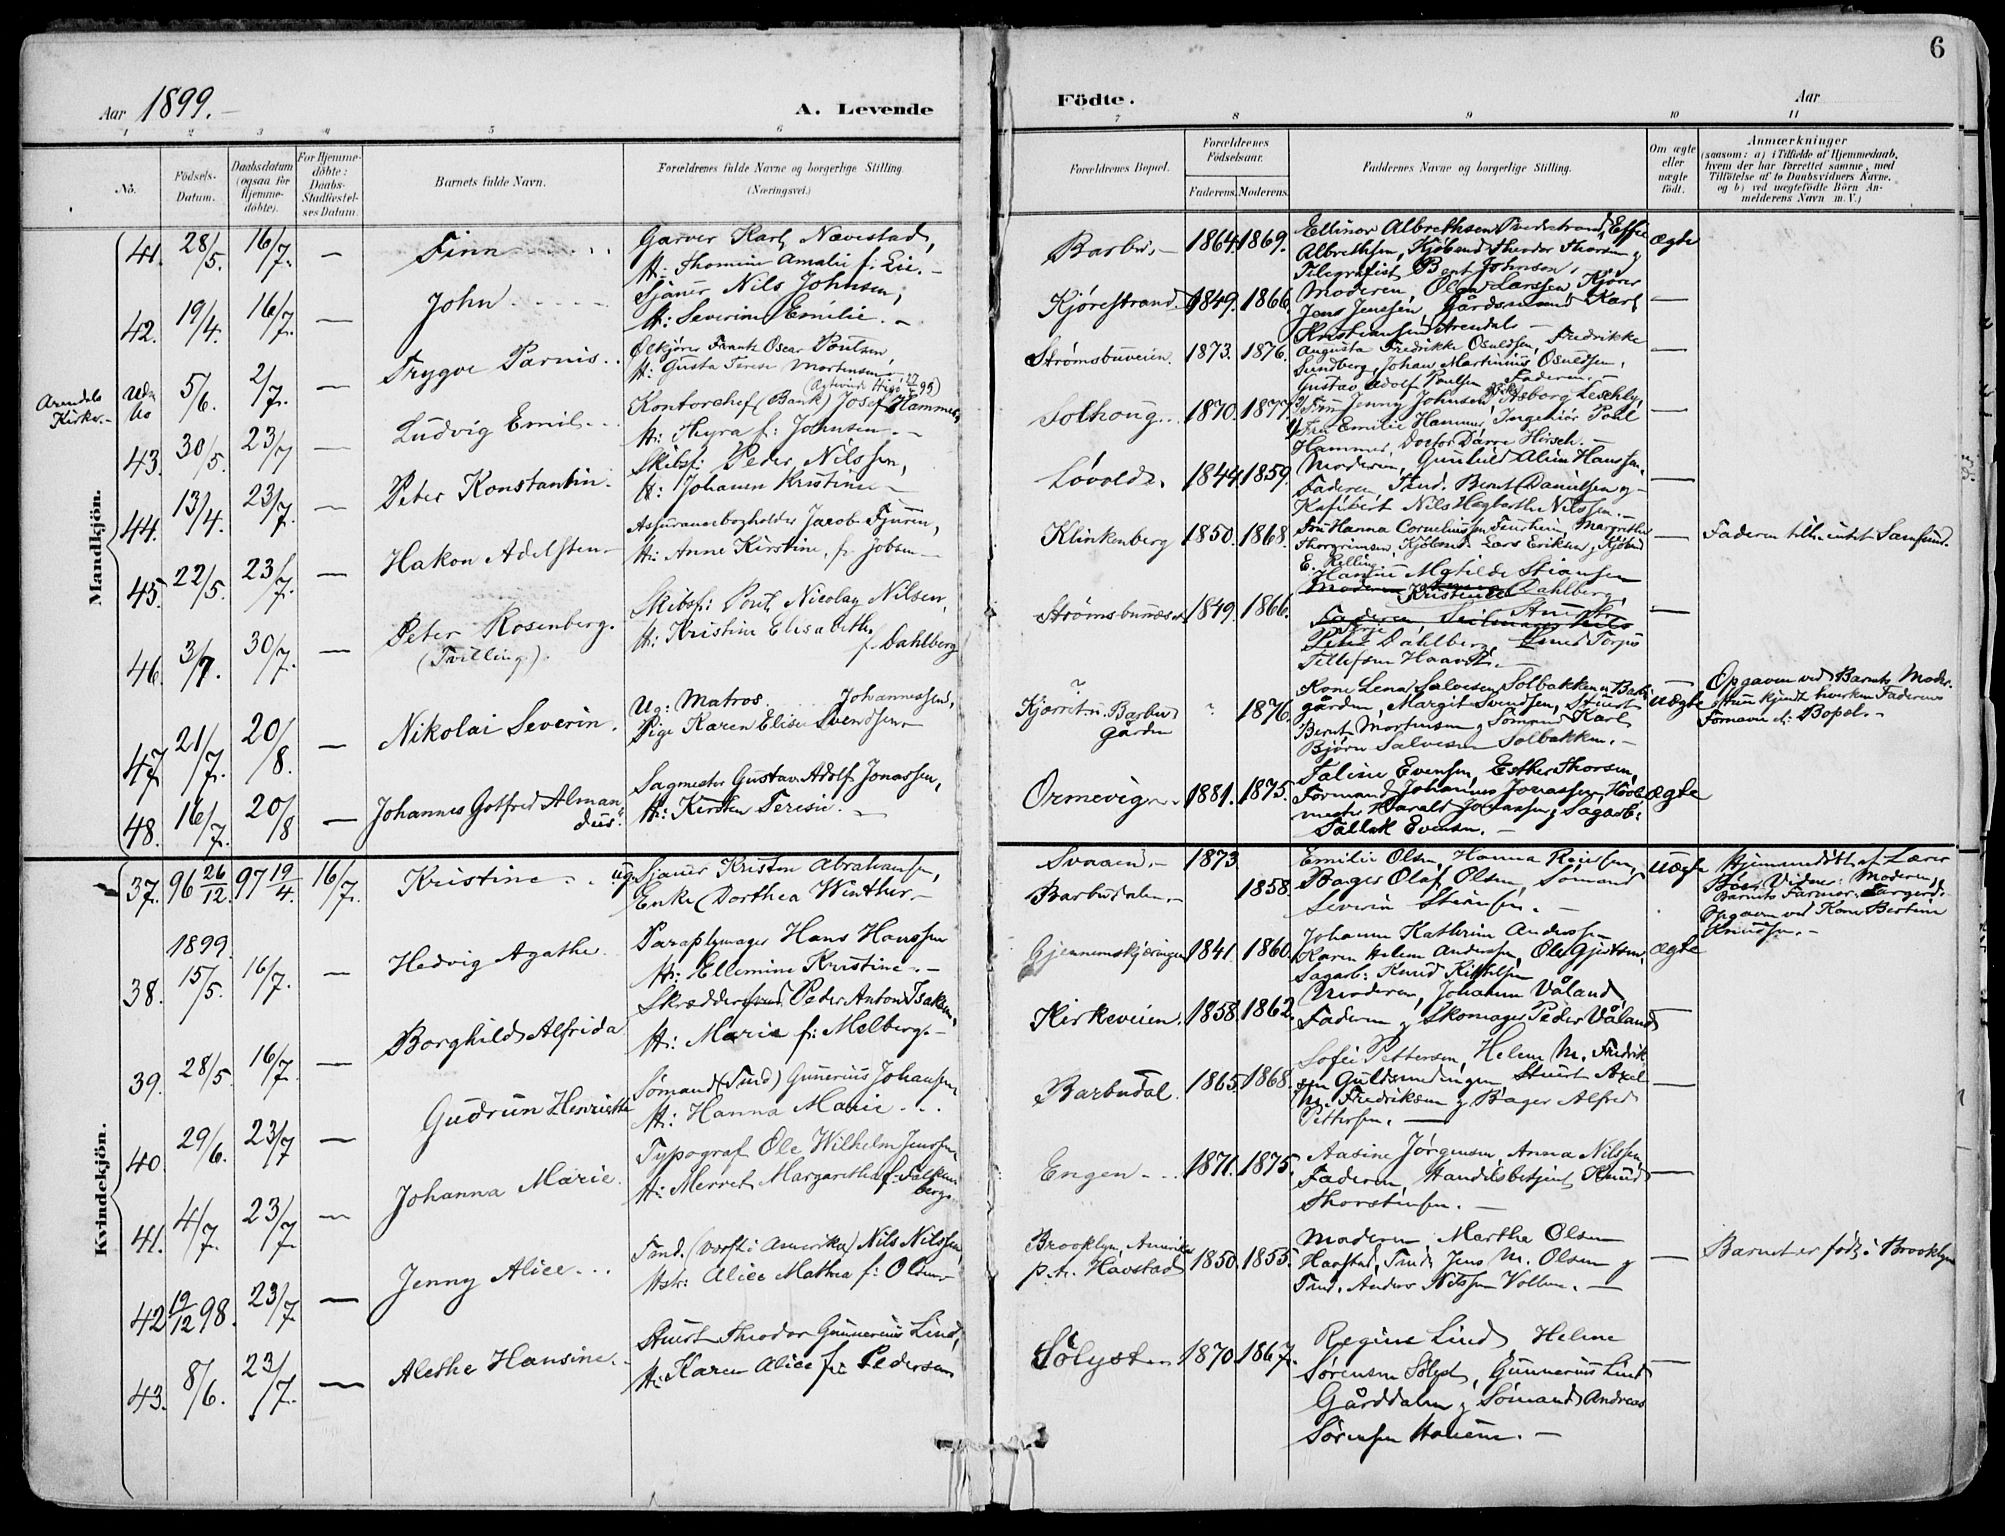 6
Aar 1899.
A. Levende
Födte.
Aar
1 2 3 4 5 6 7 8 9 10 11
No.
Födsels-Datum.
Daabsdatum (ogsaa for Hjemme-döbte).
For Hjemme-döbte: Daabs-Stadfæstel-ses Datum.
Barnets fulde Navn.
Forældrenes fulde Navne og borgerlige Stilling. (Næringsvei.)
Forældrenes Bopæl.
Forældrenes Födselsaar.
Faderens. Moderens.
Faddernes Navne og borgerlige Stilling.
Om ægte eller uægte födt.
Anmærkninger (saasom: a) i Tilfælde af Hjemmedaab, hvem der har forrettet samme, med Tilföielse af to Daabsvidners Navne, og b) ved uægtefödte Börn An-melderens Navn m. V.)
Mandkjön.
41. 28/5. 16/7. — Finn
Garver Karl Nævestad,
H: Thomine Amalie f. Lie. —
Barbu. — 1864. 1869.
Albrethsen, Kjöbmd Theodor Thorsen
Telegrafist Bent Johnsen,
ægte
42. 19/4. 16/7. — John
Sjauer Nils Johnsen,
H: Severine Emilie. —
Kjörestrand 1849. 1866.
Moderen, Olga Larssen Kjörer
Jens Jenssen, Gårdsmand Karl
Kristiansen Arendal. —
—
Arendals Kirke. —
Uden No 5/6. 2/7. — Trygve Parnis
Ölkjörer Frantz Oscar Poulsen,
H: Gusta Terese Mortensen
Strømsbuveien. 1873. 1876.
Augusta Fredrikke Osuldsen, Fredrikke
Sundberg, Johan Martinius Osuldsen,
Gustav Adolf Paulsen, Faderen.
—
43. 30/5. 23/7 — Ludvig Emil
Kontorchef (Bank) Josef Hammer,
H: Thyra f: Johnsen. —
Solhoug. 1870. 1877.
Fru Jenny Johnsen,
Fru Emilie Hammer, Ingeniör Poul
Hammer, Doktor Darre Hirsch. —
—
44. 13/4. 23/7. — Peter Konstantin.
Skibsf: Peder Nilssen,
H: Johanne Kristine —
Løvold. 1844. 1859.
Moderen, Gunhild Aline Hanssen,
Faderen, Tmd. Bernt Danielsen og
Nils Hagbarth Nilssen. —
—
45. 22/5. 23/7. — Hakon Adelsten
Assurancebogholder Jacob Fjuren,
H: Anne Kirstine, f. Jobsen —
Klinkenberg 1850. 1868.
Fru Hanna Corneliussen Margrethe
Thorgrimsen, Kjöbmd. Lars Eriksen, Kjöbmd
E. Relling.
—
Faderen tilh. intet Samfund.
46. 3/7. 30/7. — Peter Rosenberg. (Tvilling.)
Skibsf: Poul Nicolay Nilsen,
H: Kristine Elisabeth
f. Dahlberg
Strømsbunæs 1849. 1866.
Hanne Matilde Stiansen
Moderen Kristine Dahlberg,
Dahlberg,
Tellefsen Haavet. —
—
47. 21/7. 20/8. — Nikolai Severin.
Ug: Matros. Johannessen,
Pige Karen Elise Svendsen —
?
Kjærret u. Barbu gården
? 1876.
Kone Lena Salvesen Solbakken u. Barbu
gården, Margit Svendsen, Stuert
Bernt Mortensen, Sömand Karl
Björn Salvesen Solbakken. —
uægte
Opgaven ved Barnets Moder.
Hun kjendte hverken Faderens
Fornavn el: Bopæl. —
48. 16/7. 20/8 — Johannes Gotfred Alman dus.
Sagmester Gustav Adolf Jonassen,
H: Kirsten Teresie. —
Ormevigen. 1881. 1875.
Taline Evensen, Esther Thorsen,
Formand Johannes Jonassen, Hövl
mester Harald Jonassen, Sagarb:
Tallak Evensen. —
ægte
Kvindekjön.
37. 96 26/12. 97 19/4. 16/7. Kristine
ug. Sjauer Kristen Abrahamsen,
Enke Dorthea Winther —
Svaaen. — 1873
Barbudalen. — 1858.
Emilie Olsen, Hanna
Bager Olaf Olsen, Sömand
Severin Stiansen. —
uægte
Hjemmedöbt af Lærer
Vidner: Moderen,
Barnets Farmor.
Opgaven ved Kone Bertine
Knudsen. —
1899.
38. 15/5. 16/7. — Hedvig Agathe.
Paraplymager Hans Hanssen
H: Ellemine Kristine. —
Gjennemskjæringen 1841. 1860.
Johanne Kathrine Anderssen
Karen Helene Anderssen, Ole Gjertsen,
Sagarb: Knud Kittelsen
ægte
39. 28/5 16/7. — Borghild Alfrida
Skræddersvend Peder Anton Isaksen,
H: Marie f: Melberg. —
Kirkeveien. 1858. 1862.
Moderen, Johanne Våland,
Faderen og Skomager Peder Våland
—
40. 29/6. 23/7 — Gudrun Henriette
Sømand (Tmd) Gunerius Johansen
H: Hanna Marie
Barbudal. 1865. 1868.
Sofie Pettersen, Helene M. Fredrik
sen Guldsmedingen, Stuert Axel
M. Fredriksen og Bager Alfred
Pettersen. —
—
41. 4/7. 23/7. — Johanna Marie.
Typograf Ole Wilhelm Jenssen
H: Merret Margarethe f. Falken
berg.
Engen 1871. 1875.
Aasine Jørgensen, Anna Nilssen,
Faderen, Handelsbetjent Knud
Thorstensen. —
—
42. 19/12 98. 23/7. — Jenny Alice
Tmd. (Værft i Amerika) Nils Nilssen,
Hstr: Alice Mathea f: Olsen —
Brooklyn, Amerika
p. t. Havstad 1850. 1855.
Moderen, Martha Olsen
Havstad, Tmd. Jens M. Olsen og
Tmd. Anders Nilssen Vollene. —
—
Barnet er födt i Brooklyn
43. 8/6. 23/7. — Alethe Hansine.
Stuert Theodor Gunnerius Lind,
H: Karen Alice f: Pedersen
Sölyst 1870. 1867.
Regine Lind, Helene
Sørensen Sölyst, Gunnerius Lind
Gårddalen og Sømand Andreas
Sørensen Hauene. —
—